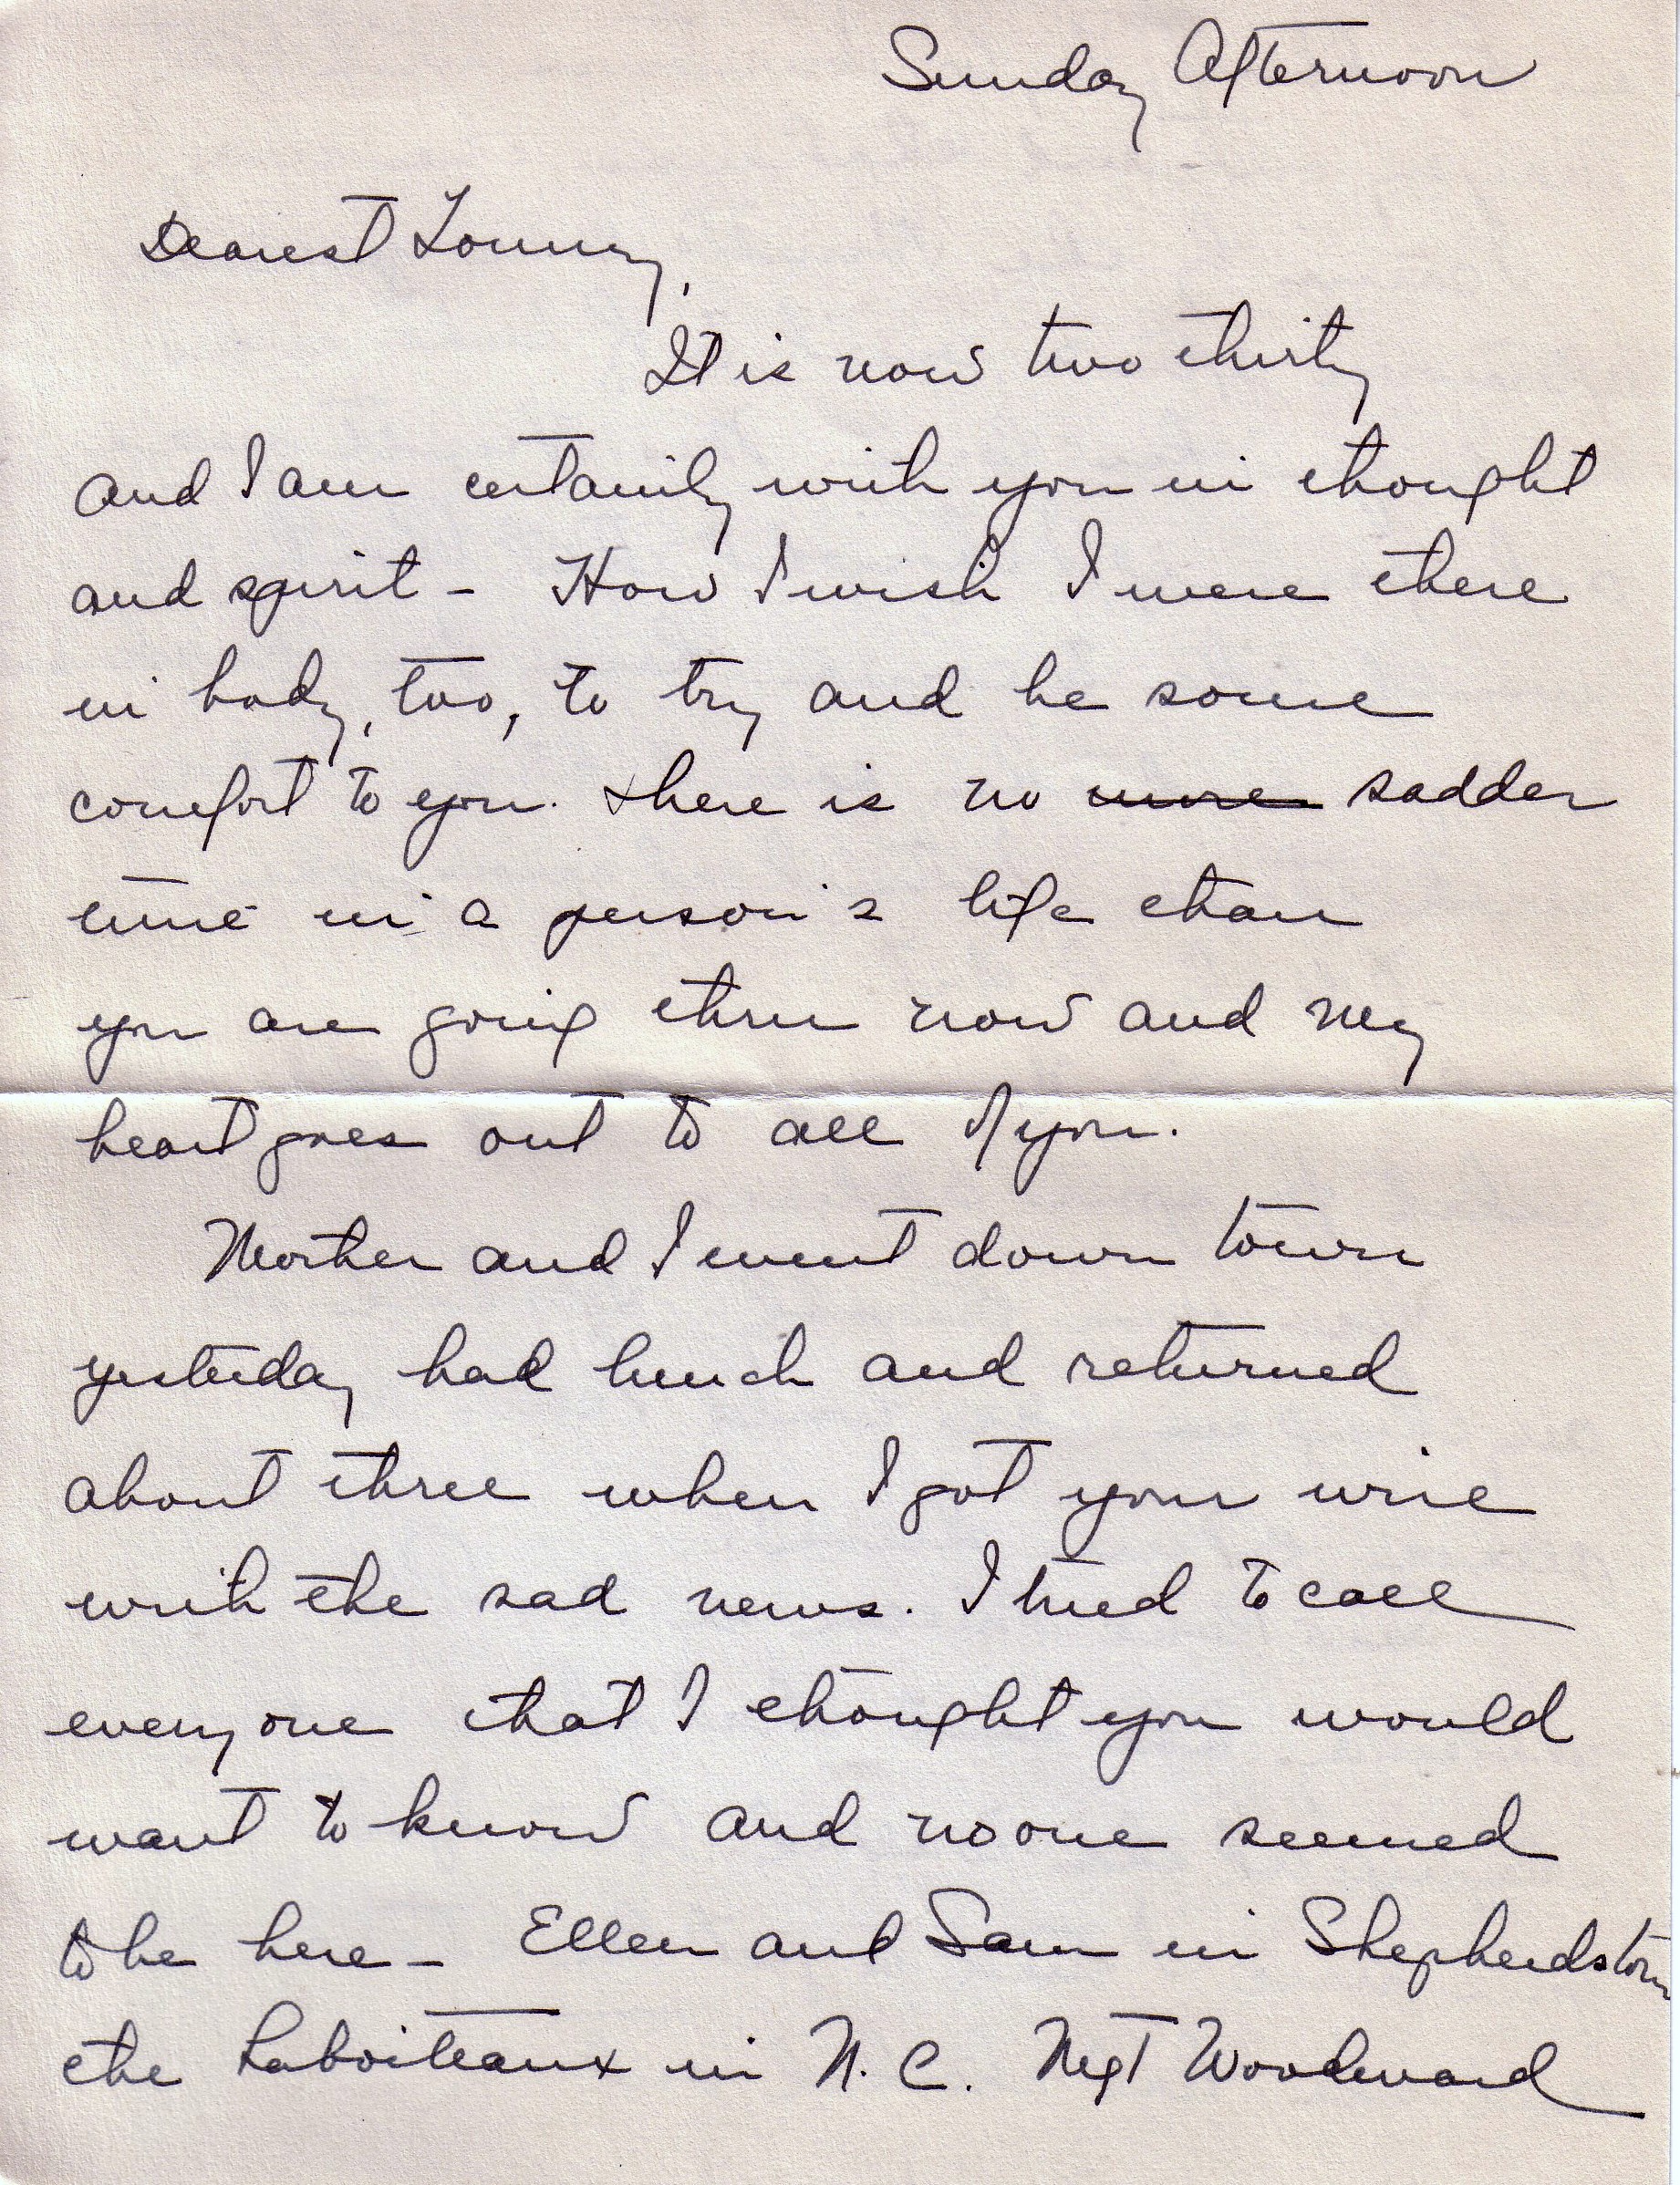 Sunday Afternoon
Dearest Tommy,
It is now two thirty
and I am certainly with you in thought
and spirit - How I wish I were there
in body, too, to try and be some
comfort to you. There is no more sadder
time in a person's life than
you are going thru now and my
heart goes out to all of you.
Mother and I went down town
yesterday had lunch and returned
about three when I got your wire
with the sad news. I tried to call
everyone that I thought you would
want to know and no one seemed
to be here - Ellen and Sam in Shepherdstown
the Laboiteaux in N.C. Mgt Woodward